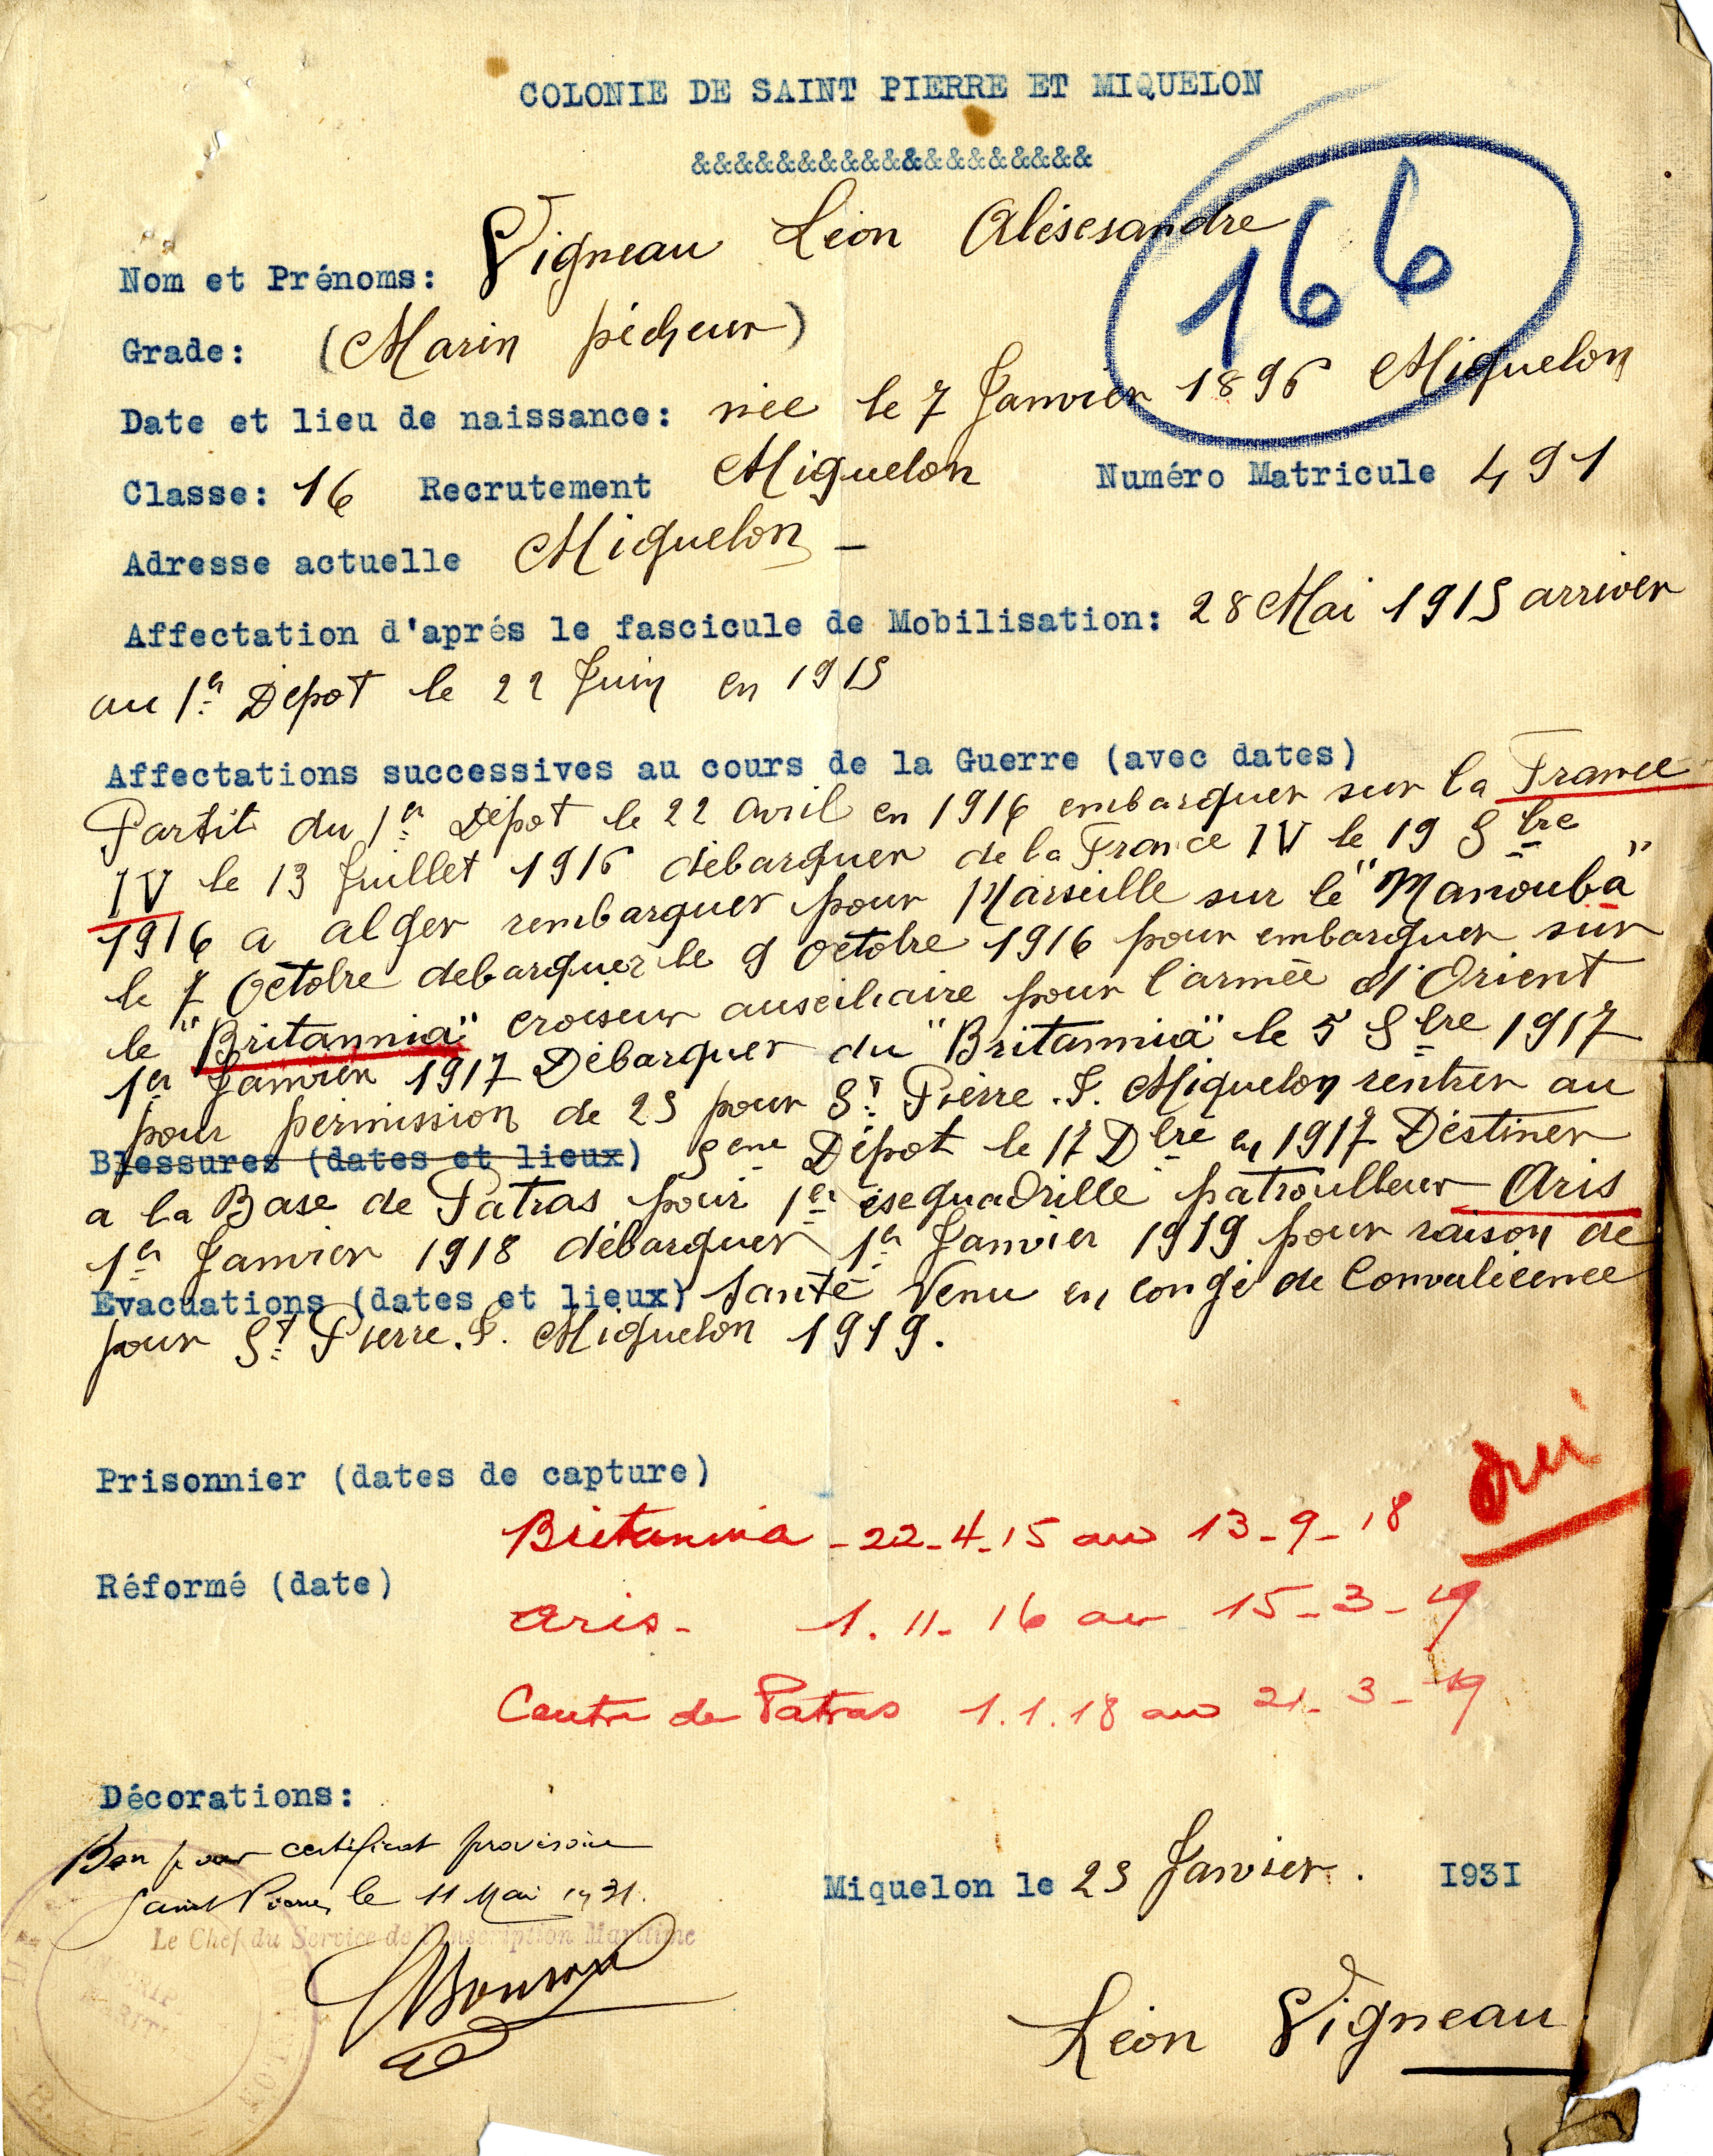 COLONIE DE SAINT PIERRE ET MIQUELON
&&&&&&&&&&&&&&&&&&&
166
Nom et Prénoms: Vigneau Léon Alèsesandre
Grade: (Marin pécheur)
Date et lieu de naissance: née le 7 Janvier 1896 Miquelon
Classe: 16 Recrutement Miquelon Numéro Matricule 491
Adresse actuelle Miquelon -
Affectation d'aprés le fascicule de Mobilisation: 28 Mai 1915 arriver
au 1er Dépot le 22 Juin en 1915
Affectations successives au cours de la Guerre (avec dates)
Partit du 1er Dépot le 22 avril en 1916 embarquer sur la France
IV le 13 Juillet 1916 débarquer de la France IV le 19 8bre
1916 a alger rembarquer pour Marseille sur le "Manouba"
le 7 Octobre debarquer le 9 octobre 1916 pour embarquer sur
le "Britannia" croiseur auseiliaire pour l'armée d'Orient
1er Janvier 1917 Débarquer du "Britannia" le 5 8bre 1917
pour permission de 25 pour St Pierre. F. Miquelon rentrer au
Blessures (dates et lieux) 5eme Dépot le 17 Dbre en 1917 Destiner
a la Base de Patras pour 1er esequadrille patroulleur Aris
1er Janvier 1918 débarquer 1er Janvier 1919 pour raison de
Evacuations (dates et lieux) santé Venu en congé de Convalecence
pour St Pierre. F. Miquelon 1919.
Prisonnier (dates de capture)
oui
Britannia - 22-4-15 au 13-9-18
Réformé (date)
Aris - 1.11-16 au 15-3-19
Centre de Patras 1.1.18 au 21-3-19
Décorations:
Bon pour certificat provisoire
Saint Pierre, le 11 Mai 1931.
Le Chef du Service de l'Inscription Maritime
Miquelon le 25 Janvier. 1931
Léon Vigneau